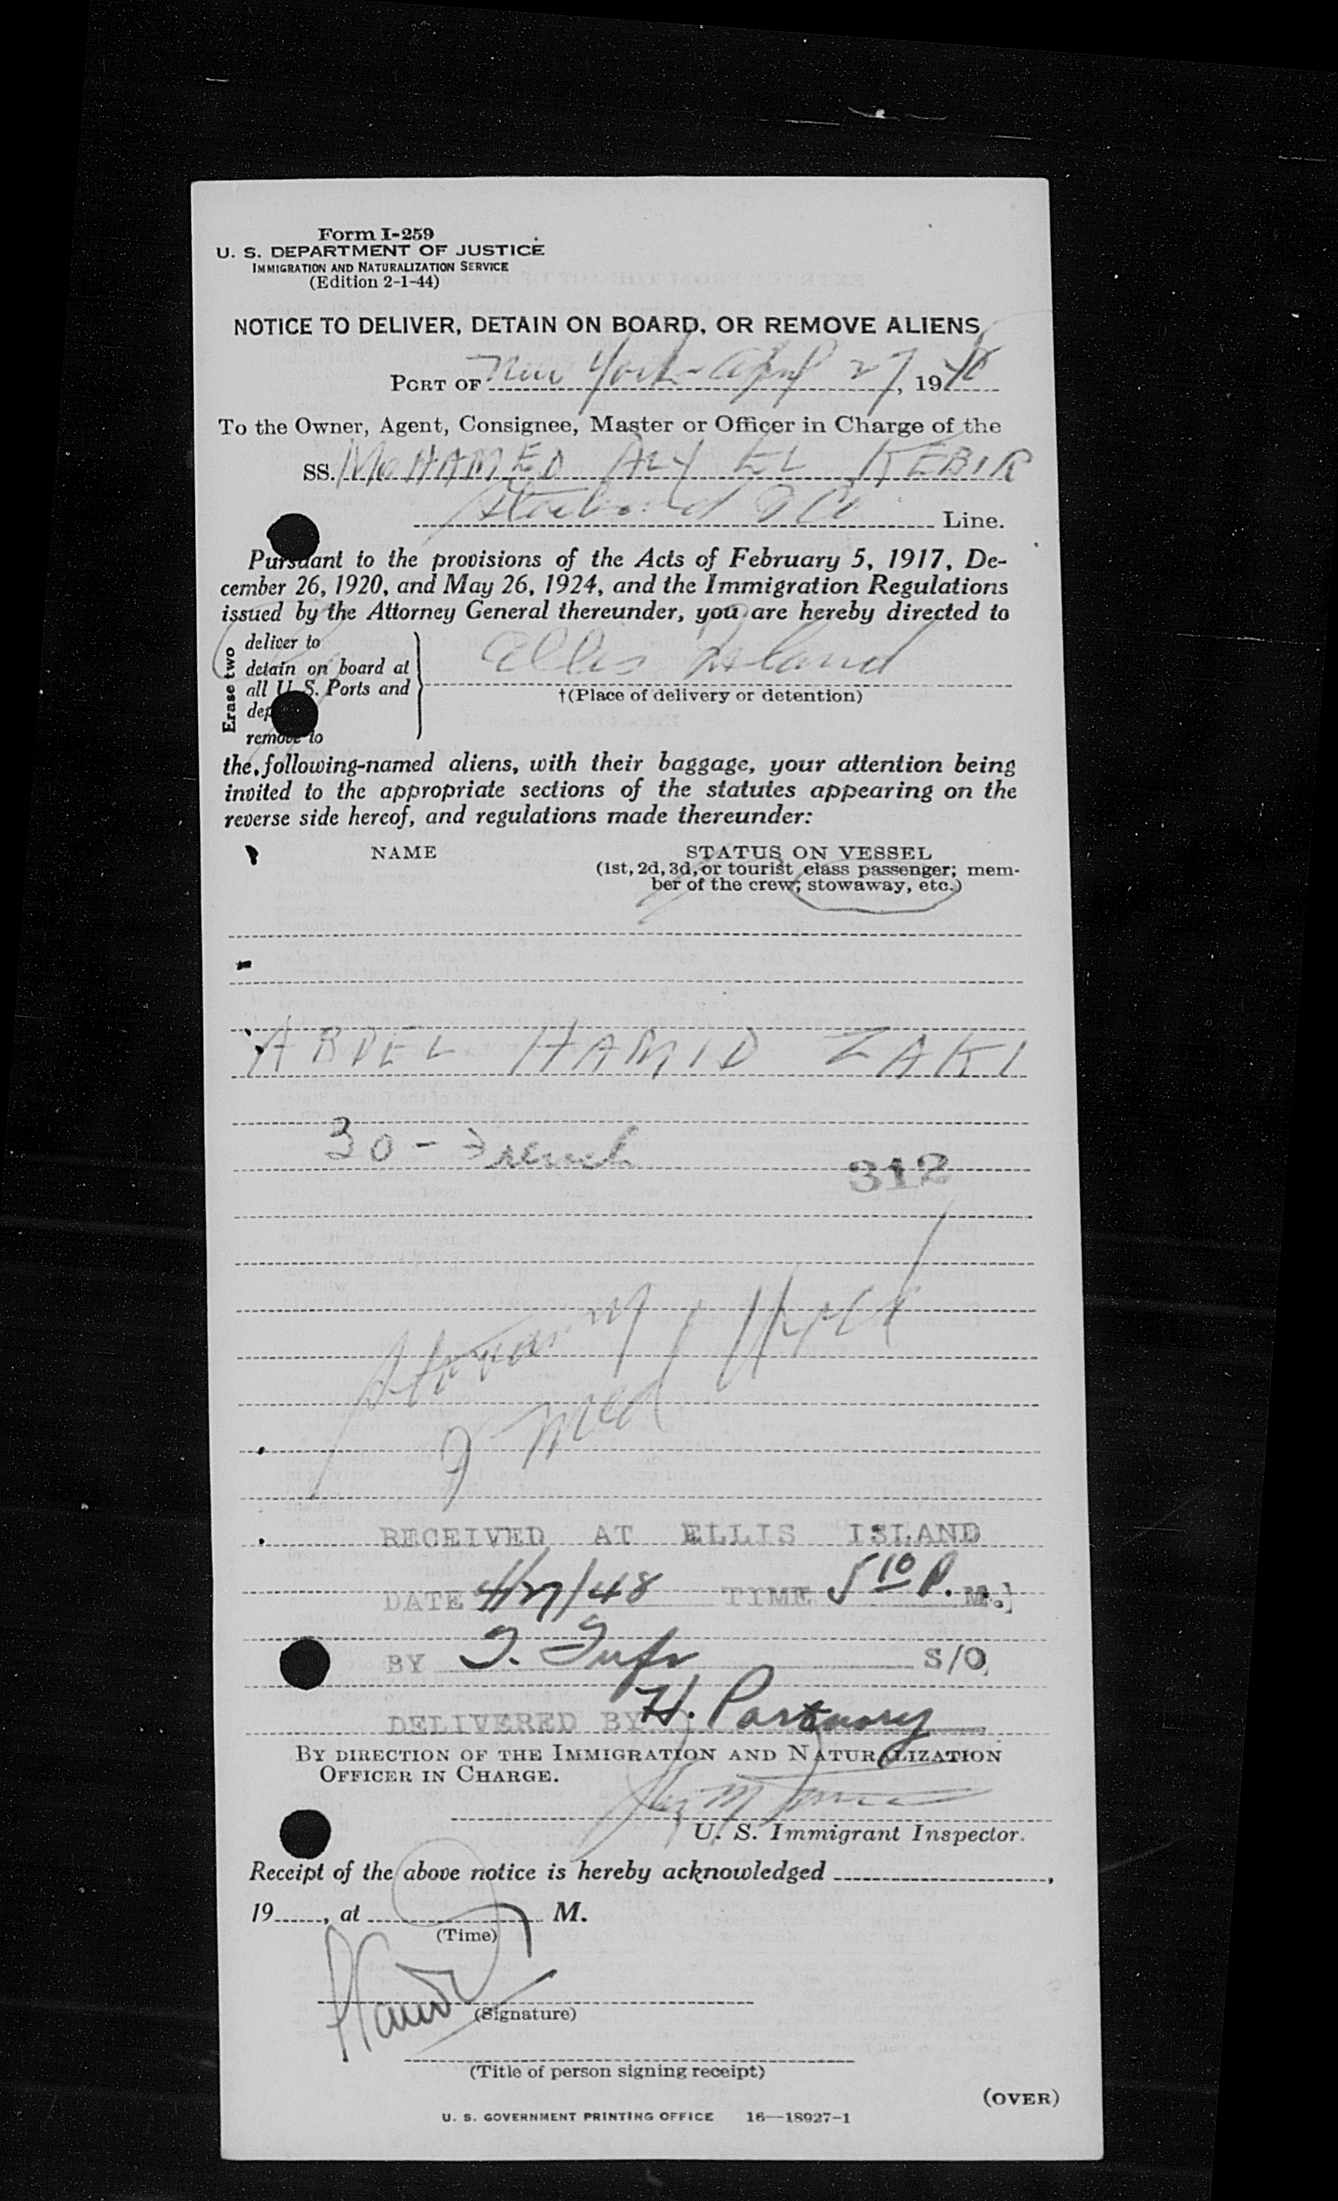 Form I-259
U. S. DEPARTMENT OF JUSTICE
IMMIGRATION AND NATURALIZATION SERVICE
(Edition 2-1-44)
NOTICE TO DELIVER, DETAIN ON BOARD, OR REMOVE ALIENS
PORT OF New York - April 27, 1948
To the Owner, Agent, Consignee, Master or Officer in Charge of the
SS. MOHAMED ALY EL KEBIR
& Co Line.
Pursuant to the provisions of the Acts of February 5, 1917, De-
cember 26, 1920, and May 26, 1924, and the Immigration Regulations
issued by the Attorney General thereunder, you are hereby directed to
Erase two
deliver to
detain on board at
all U. S. Ports and
dep
remove to
Ellis Island
†(Place of delivery or detention)
the following-named aliens, with their baggage, your attention being
invited to the appropriate sections of the statutes appearing on the
reverse side hereof, and regulations made thereunder:
NAME
STATUS ON VESSEL
(1st, 2d, 3d, or tourist class passenger; mem-
ber of the crew; stowaway, etc.)
ABDEL HAMID ZAKI
30 - French
312
Stowaway
& Med
RECEIVED AT ELLIS ISLAND
DATE 4/27/48 TIME 5 10 P. M.
BY S/O
DELIVERED BY H.
BY DIRECTION OF THE IMMIGRATION AND NATURALIZATION
OFFICER IN CHARGE.
U. S. Immigrant Inspector.
Receipt of the above notice is hereby acknowledged
19 , at M.
(Time)
(Signature)
(Title of person signing receipt)
(OVER)
U. S. GOVERNMENT PRINTING OFFICE 16—18927-1